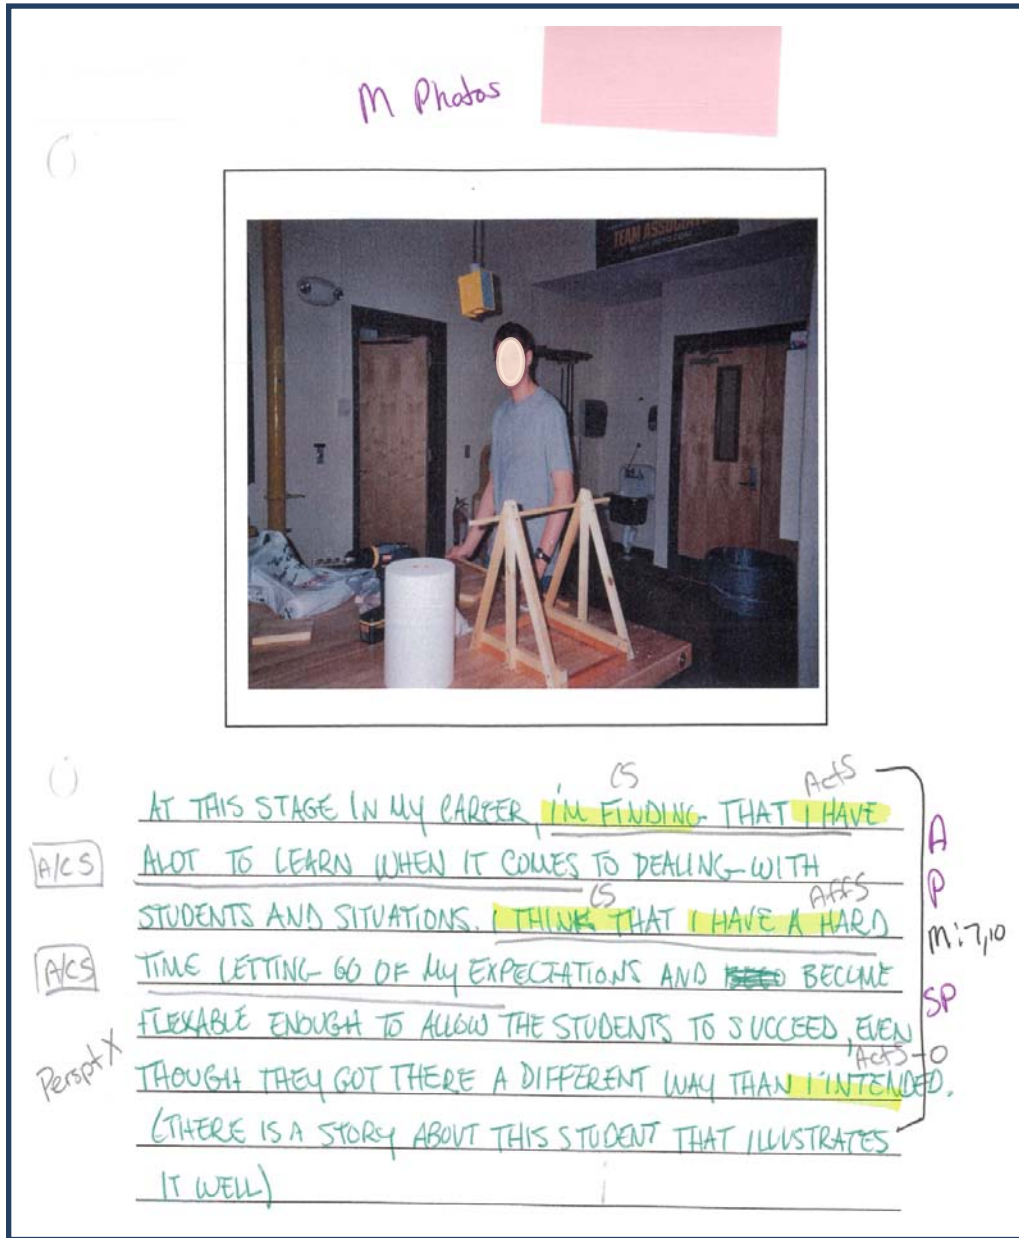 M Photos
TEAM ASSOCIATED
CS ActS
AT THIS STAGE IN MY CAREER, I'M FINDING THAT I HAVE
A/CS ALOT TO LEARN WHEN IT COMES TO DEALING WITH
CS AffS
STUDENTS AND SITUATIONS. I THINK THAT I HAVE A HARD
A/CS TIME LETTING GO OF MY EXPECTATIONS AND BECOME
FLEXABLE ENOUGH TO ALLOW THE STUDENTS TO SUCCEED, EVEN
ActS-O
Perspt X THOUGH THEY GOT THERE A DIFFERENT WAY THAN I INTENDED.
(THERE IS A STORY ABOUT THIS STUDENT THAT ILLUSTRATES
IT WELL)
A
P
M:7,10
SP